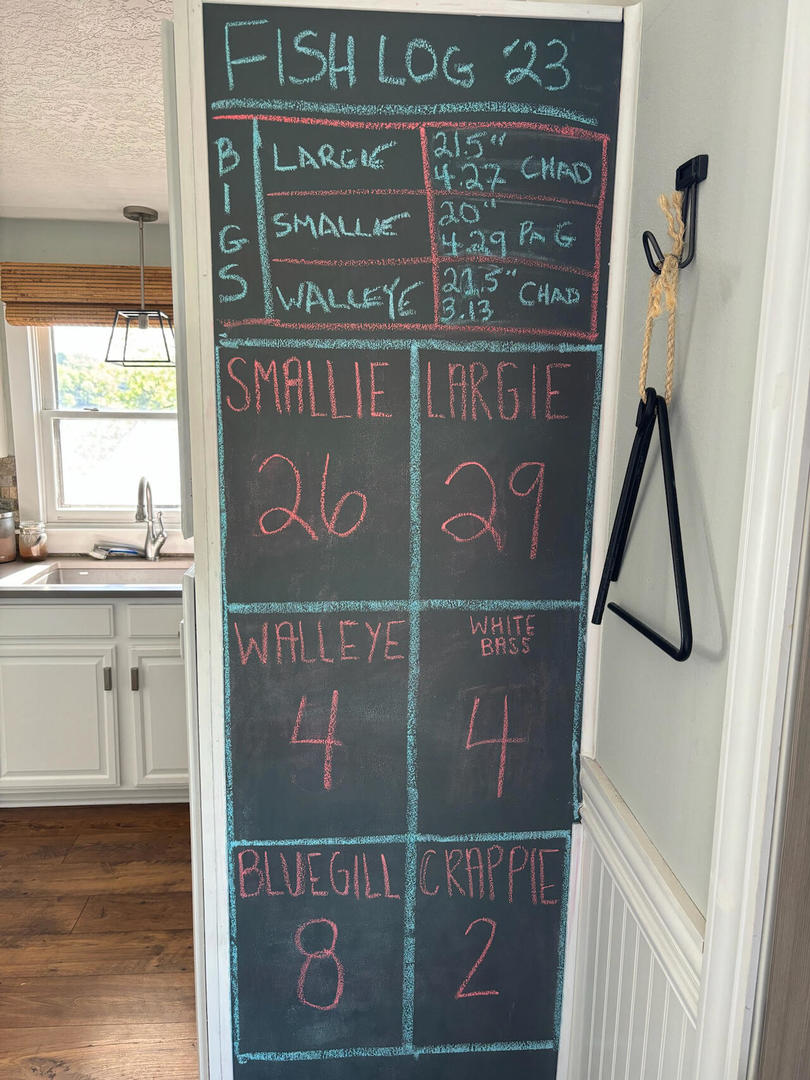 FISH LOG '23
BIGS
LARGIE
21.5"
4.27 CHAD
SMALLIE
20"
4.29 PAG
WALLEYE
21.5"
3.13 CHAD
SMALLIE LARGIE
26 29
WALLEYE WHITE
BASS
4 4
BLUEGILL CRAPPIE
8 2